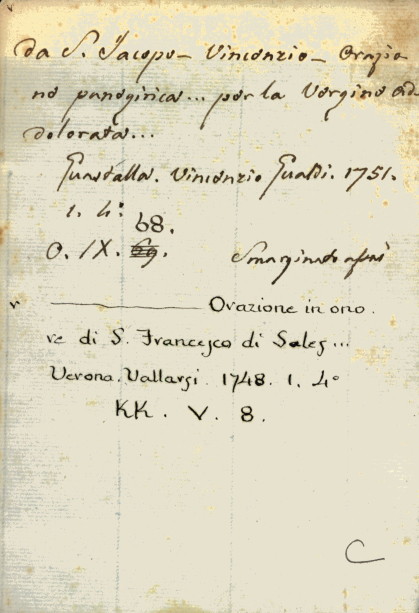 Da S. Jacopo - Vincenzio - Orazio
ne panegirica... per la Vergine ad-
dolorata...
Guastalla. Vincenzio Gualdi. 1751.
1. 4:
68.
O. IX. 69.
Smarginato assai
v ———— Orazione in ono.
re di S. Francesco di Sales...
Verona. Vallarsi. 1748. 1. 4°
KK. V. 8.
C